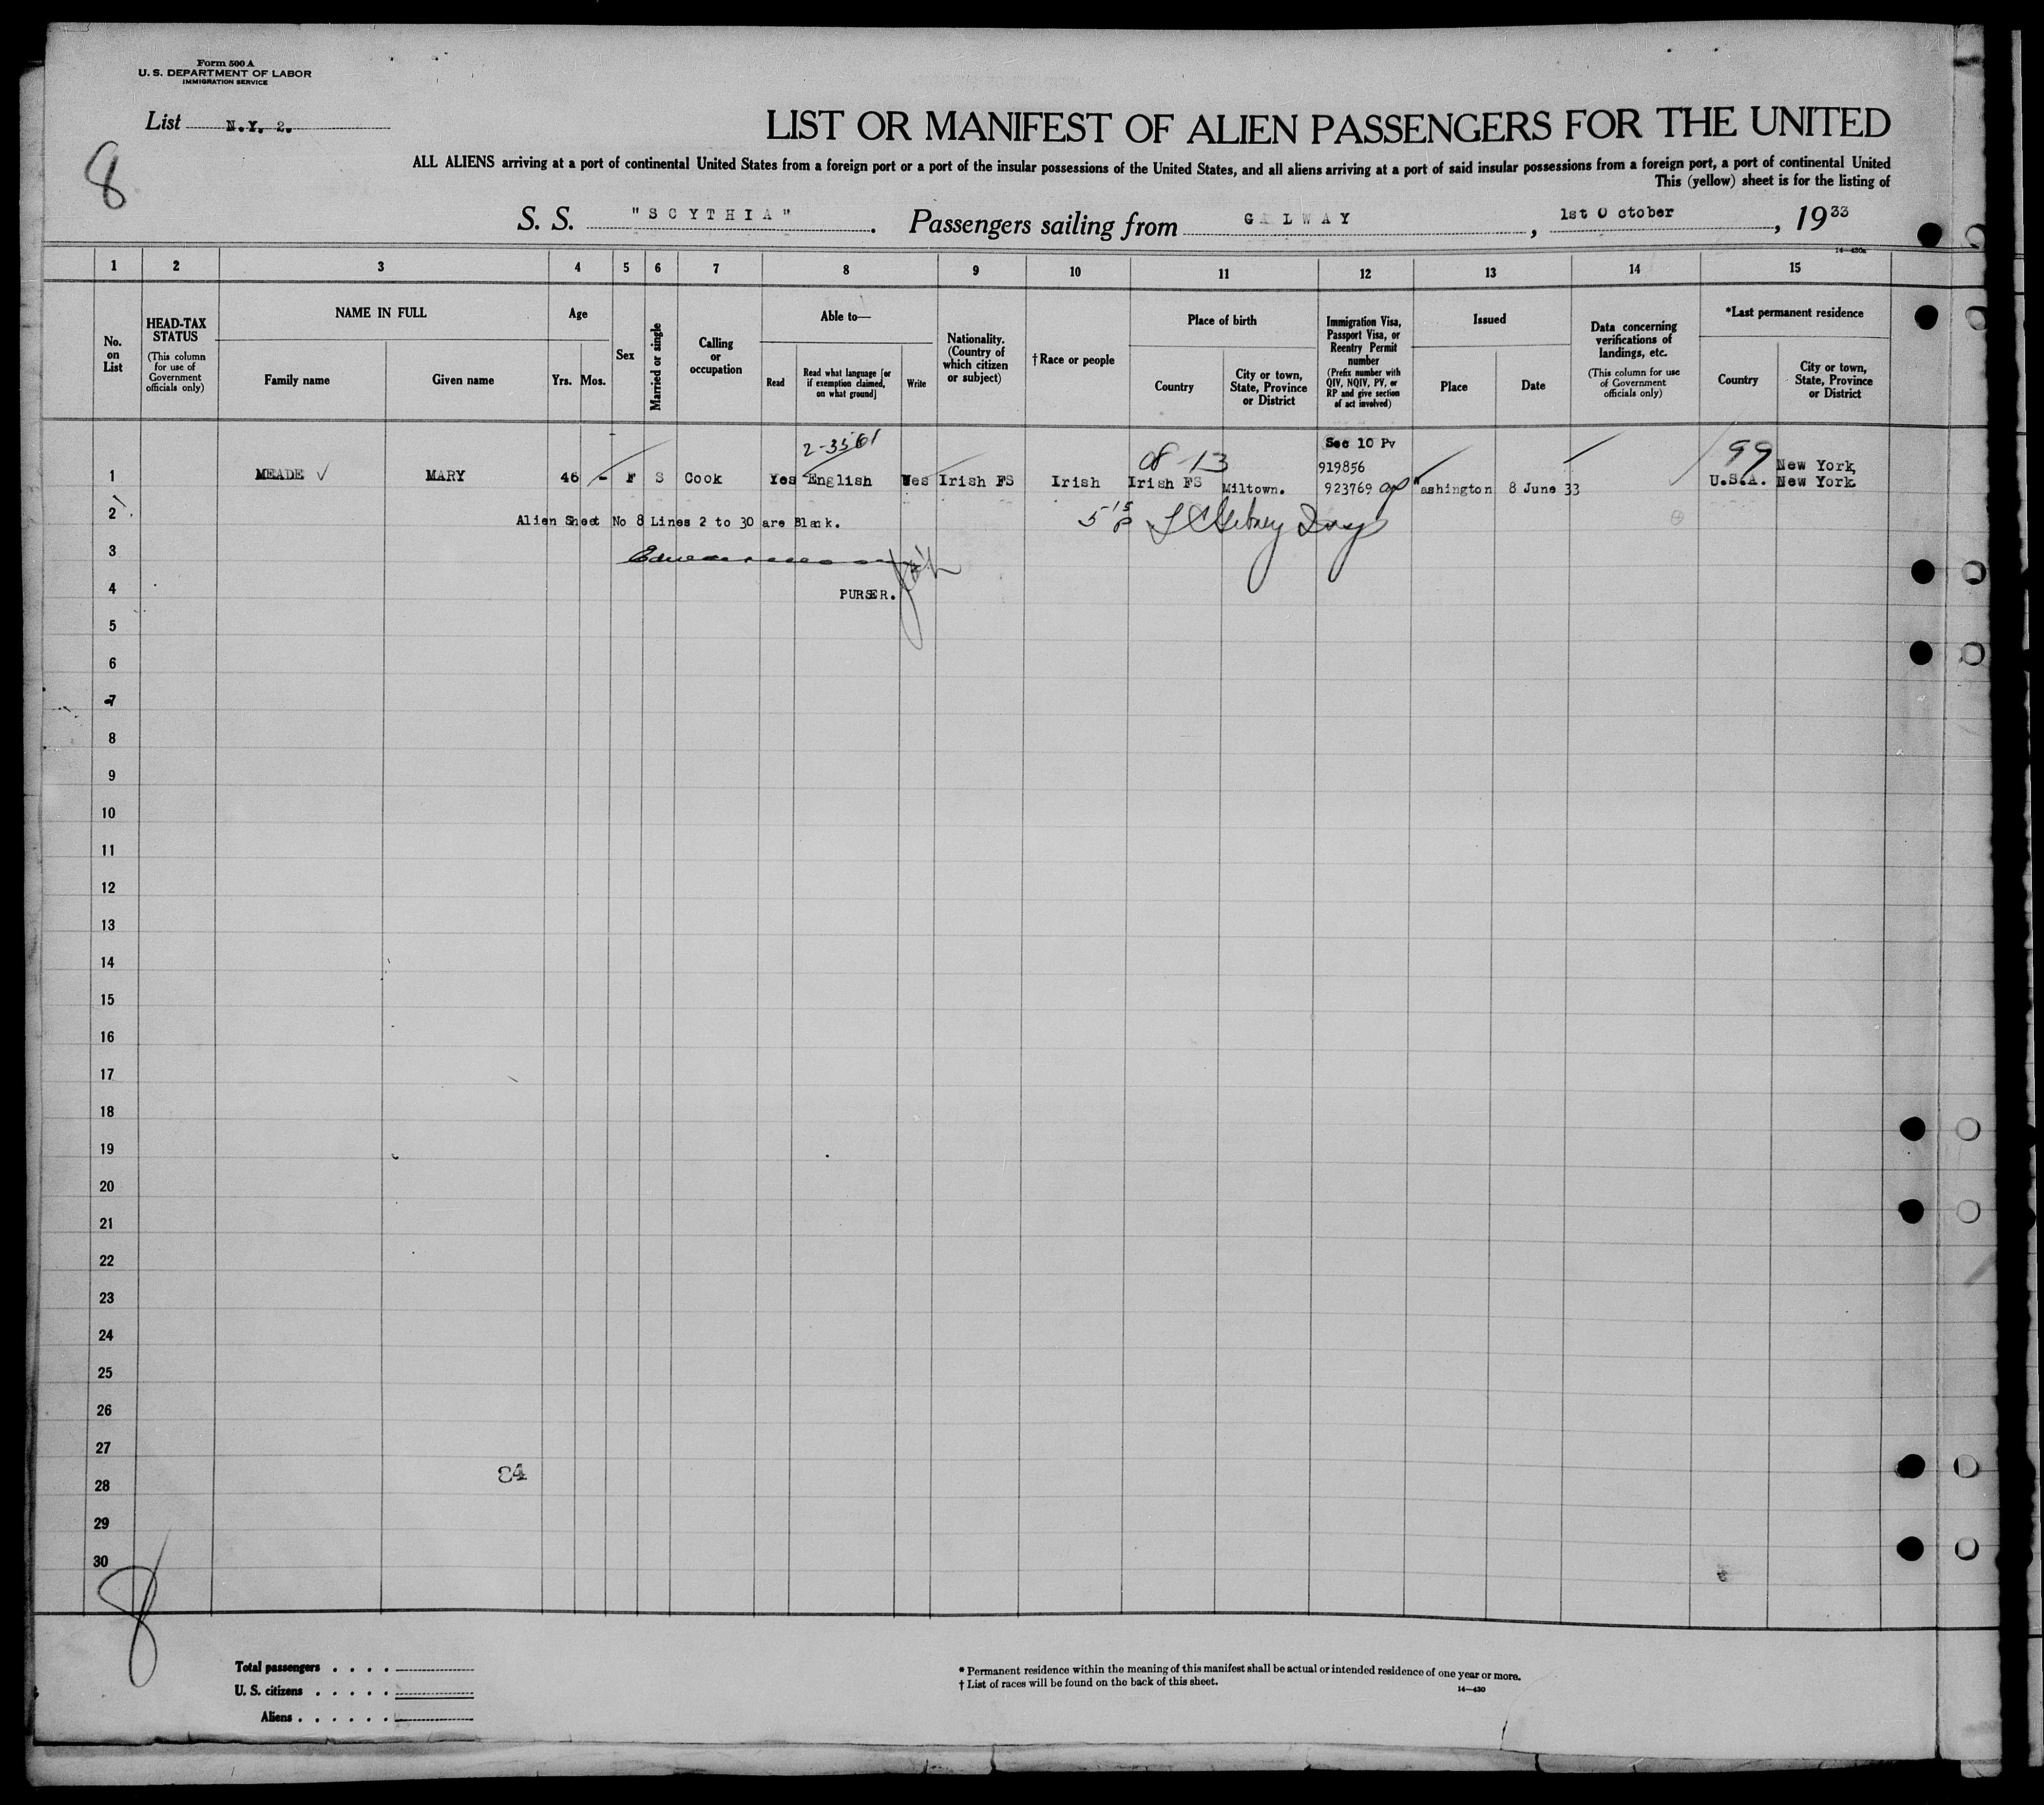 Form 500 A
U. S. DEPARTMENT OF LABOR
IMMIGRATION SERVICE
List N.Y. 2.
8
LIST OR MANIFEST OF ALIEN PASSENGERS FOR THE UNITED
ALL ALIENS arriving at a port of continental United States from a foreign port or a port of the insular possessions of the United States, and all aliens arriving at a port of said insular possessions from a foreign port, a port of continental United
This (yellow) sheet is for the listing of
S. S. "SCYTHIA". Passengers sailing from GALWAY, 1st October, 1933
14—430a
1 2 3 4 5 6 7 8 9 10 11 12 13 14 15
No. on List
HEAD-TAX STATUS
(This column for use of Government officials only)
NAME IN FULL
Family name
Given name
Age
Yrs. Mos.
Sex
Married or single
Calling or occupation
Able to—
Read
Read what language [or if exemption claimed, on what ground]
Write
Nationality. (Country of which citizen or subject)
†Race or people
Place of birth
Country
City or town, State, Province or District
Immigration Visa, Passport Visa, or Reentry Permit number
(Prefix number with QIV, NQIV, PV, or RP and give section of act involved)
Issued
Place
Date
Data concerning verifications of landings, etc.
(This column for use of Government officials only)
*Last permanent residence
Country
City or town, State, Province or District
2-3561
Sec 10 Pv
08-13
919856
99
New York,
1 MEADE ✓ MARY 46 - F S Cook Yes English Yes Irish FS Irish Irish FS Miltown. 923769 Washington 8 June 33 U.S.A. New York
2 Alien Sheet No 8 Lines 2 to 30 are Blank.
3
4 PURSER.
5
6
7
8
9
10
11
12
13
14
15
16
17
18
19
20
21
22
23
24
25
26
27
28 84
29
30
8
Total passengers . . . .
U. S. citizens . . . . .
Aliens . . . . . .
* Permanent residence within the meaning of this manifest shall be actual or intended residence of one year or more.
† List of races will be found on the back of this sheet.
14—430